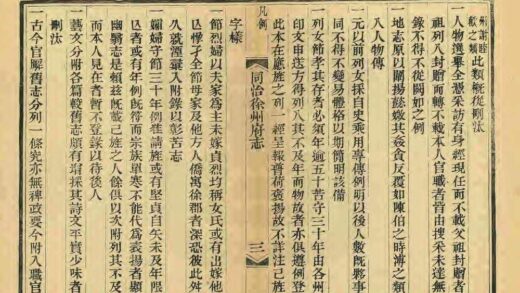 州謝陸
敘之類
此類概從刪汰
一人物選舉全憑采訪有身經現任而不載父祖封贈者
祖列入封贈而轉不載本人官職者皆由搜采未達無
錄不得不從闕如之例
一地志原以闡揚懿媺其姦貪反覆如陳伯之時溥之類
入人物傳
一元以前列女採自史乘用專傳例明以後人數既夥事
同不得不變易體格以期簡明該備
一列女節孝其存者必須年逾五十苦守三十年由各州
印文申送方得列入其不及年而物故者亦俱遵例登
此本在應旌之列一經呈報普荷褒揚故不詳注已旌
凡例
同治徐州府志
三
字樣
一節烈婦以夫家為主未嫁貞烈均稱女氏或有出嫁他
全節母家及他方人僑寓徐郡者深恐彼此舛
久就湮入附錄以彰苦志
一孀婦守節三十年例准請旌或有堅貞自矢未及年限
亡者或有年例既符而宗族單寒不能代為表揚者顯
幽勵志是賴茲既載已旌之人餘俱以次附列其不及
而本人見在者暫不登錄以待後人
一藝文分附各篇較舊志頗有增採其詩文平實少味者
刪汰
一古今官廨舊志分列一條究亦無裨政要今附入職官